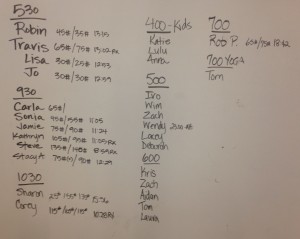 530
Robin 45#/35# 13:15
Travis 65#/75# 13:02 RX
Lisa 30#/25# 12:53
Jo 30#/30# 12:59
930
Carla 65#/
Sonia 45#/55# 11:05
Jamie 75#/90# 11:24
Kathryn 105#/95# 11:05 RX
Steve 135#/145# 8:59 RX
Stacy A 75#/90# 12:29
1030
Sharon
Corey 115#/115# 10:28 RX
400-Kids
Katie
Lulu
Anna
500
Ivo
Wim
Zach
Wendy
Lacey
Deborah
600
Kris
Zach
Aidan
Tom
Laura
700
Rob P. 65#/75# 18:42
700 YOGA
Tom